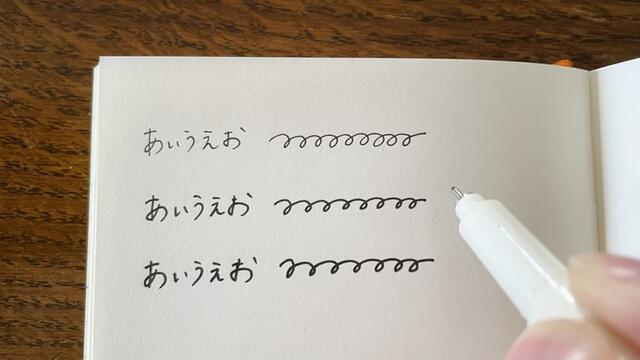 あいうえお
あいうえお
あいうえお